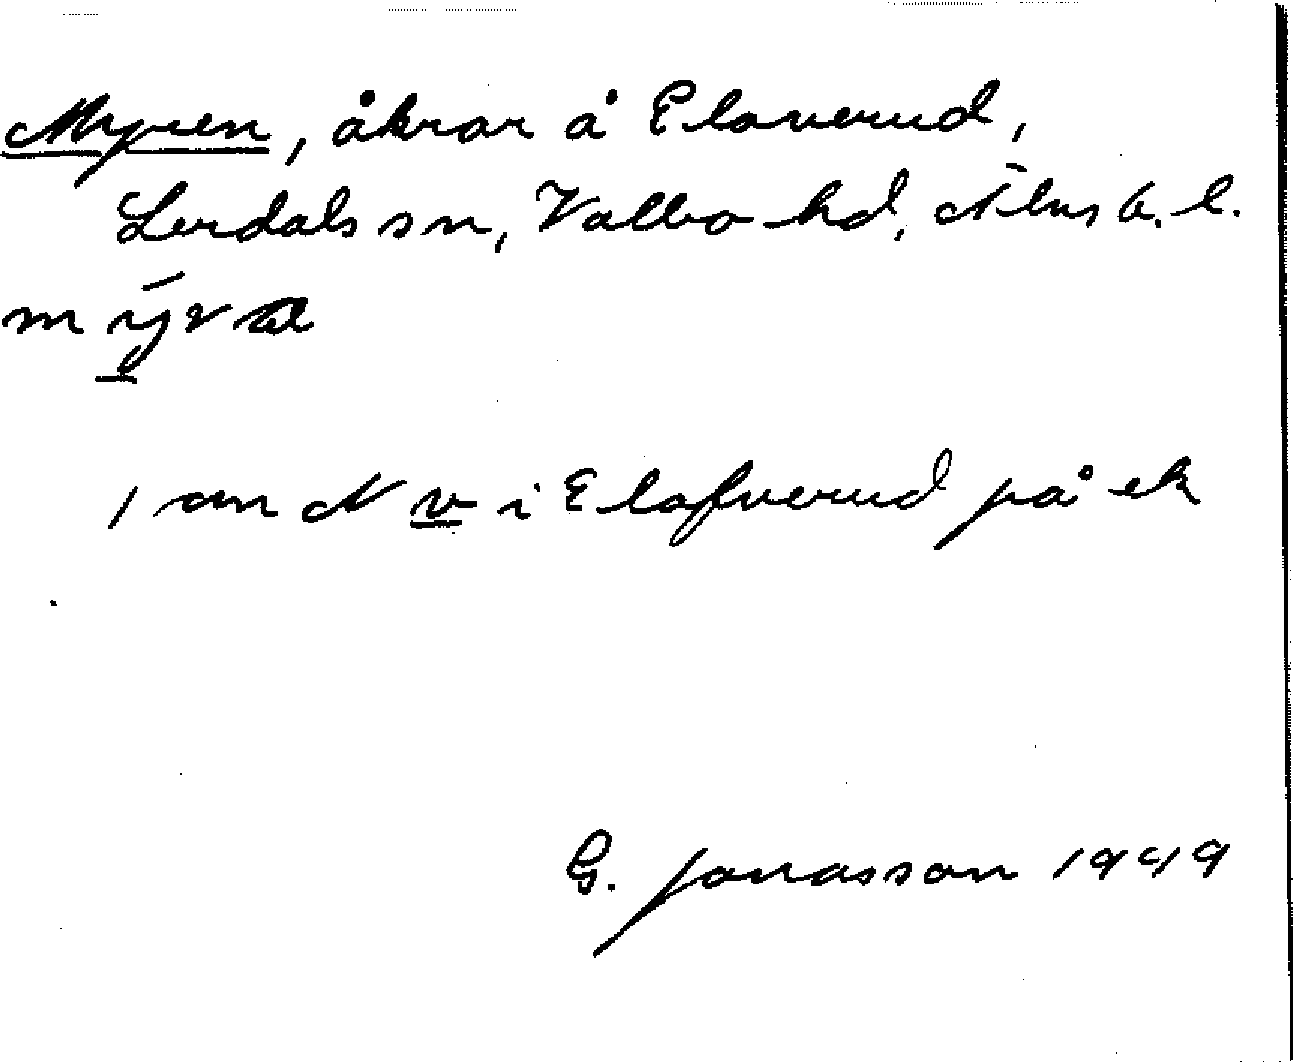 Myren, åkrar å Elaverud,
Lerdals sn, Valbo hd, Älvsb. l.
1 cm N v i Elafverud på ek
G. Jonasson 1949